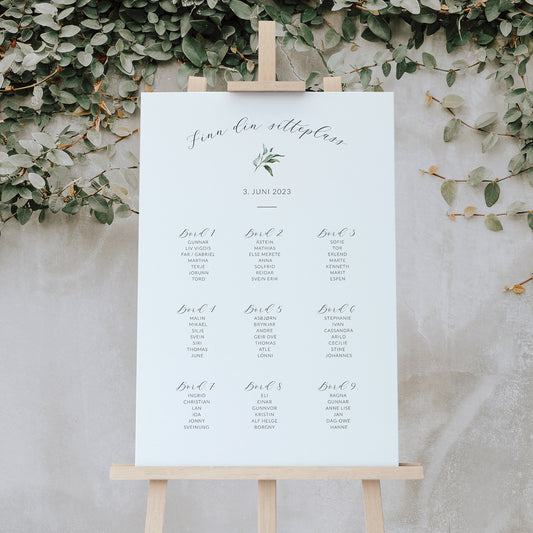 Finn din sitteplass
3. JUNI 2023
Bord 1
GUNNAR
LIV VIGDIS
PAR / GABRIEL
MARTHA
TERJE
JORUNN
TORD
Bord 2
ÅSTEIN
MATHIAS
ELSE MERETE
ANNA
SOLFRID
REIDAR
SVEIN ERIK
Bord 3
SOFIE
TOR
ERLEND
MARTE
KENNETH
MARIT
ESPEN
Bord 4
MALIN
MIKAEL
SILJE
SVEIN
SIRI
THOMAS
JUNE
Bord 5
ASBJØRN
BRYNJAR
ANDRE
GEIR OVE
THOMAS
ATLE
LONNI
Bord 6
STEPHANIE
IVAN
CASSANDRA
ARILD
CECILIE
STINE
JOHANNES
Bord 7
INGRID
CHRISTIAN
LAN
IDA
JONNY
SVEINUNG
Bord 8
ELI
EINAR
GUNNVOR
KRISTIN
ALF HELGE
BORGNY
Bord 9
RAGNA
GUNNAR
ANNE LISE
JAN
DAG-OWE
HANNE